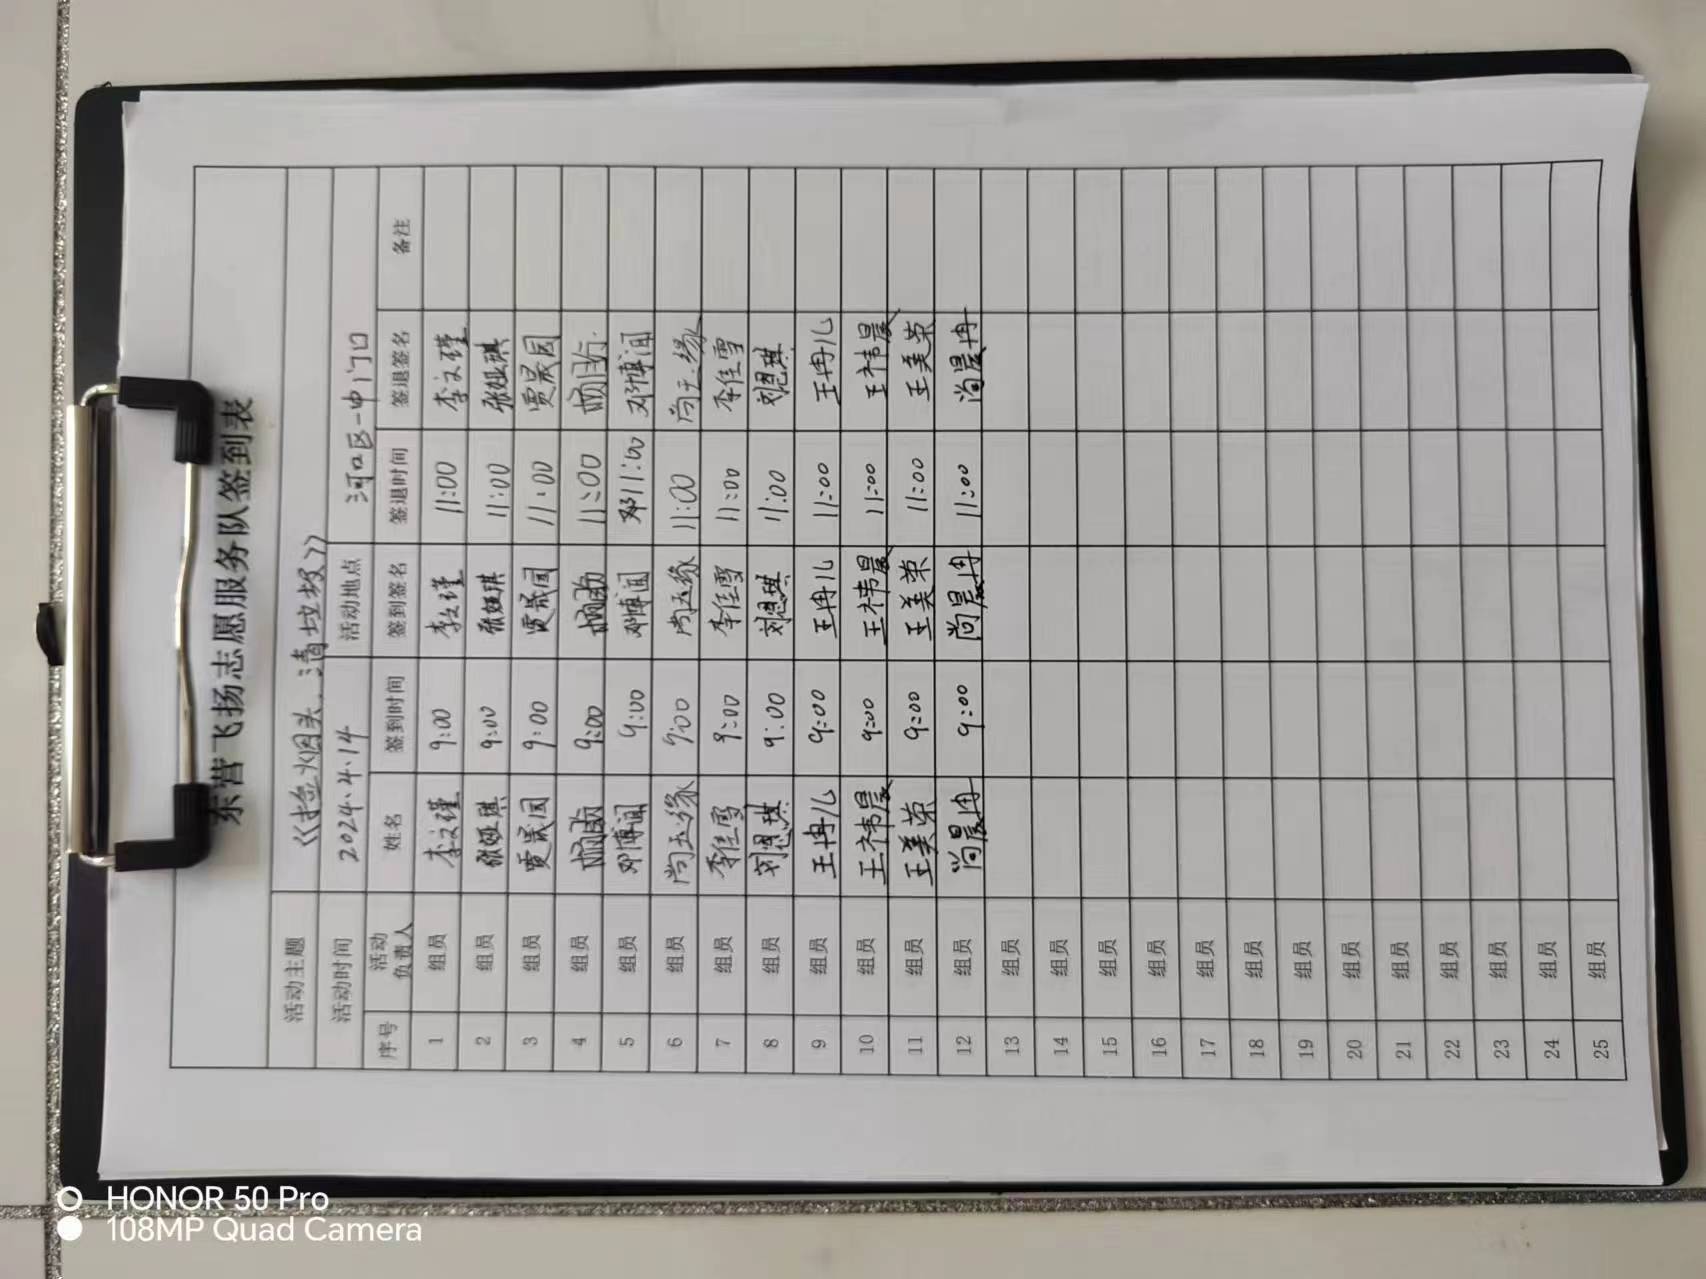 东营飞扬志愿服务队签到表
活动主题 《捡烟头、清垃圾》
活动时间 2024.4.14 活动地点 河口区一中门口
序号 活动负责人 姓名 签到时间 签到签名 签退时间 签退签名 备注
1 组员 李文瑾 9:00 李文瑾 11:00 李文瑾
2 组员 张娅琪 9:00 张娅琪 11:00 张娅琪
3 组员 贾晟园 9:00 贾晟园 11:00 贾晟园
4 组员 9:00 11:00
5 组员 邓博闻 9:00 邓博闻 邓11:00 邓博闻
6 组员 尚玉缘 9:00 尚玉缘 11:00 尚玉缘
7 组员 李佳雪 9:00 李佳雪 11:00 李佳雪
8 组员 刘恩琪 9:00 刘恩琪 11:00 刘恩琪
9 组员 王冉儿 9:00 王冉儿 11:00 王冉儿
10 组员 王祎晨 9:00 王祎晨 11:00 王祎晨
11 组员 王美荣 9:00 王美荣 11:00 王美荣
12 组员 尚晨冉 9:00 尚晨冉 11:00 尚晨冉
13 组员
14 组员
15 组员
16 组员
17 组员
18 组员
19 组员
20 组员
21 组员
22 组员
23 组员
24 组员
25 组员
HONOR 50 Pro
108MP Quad Camera